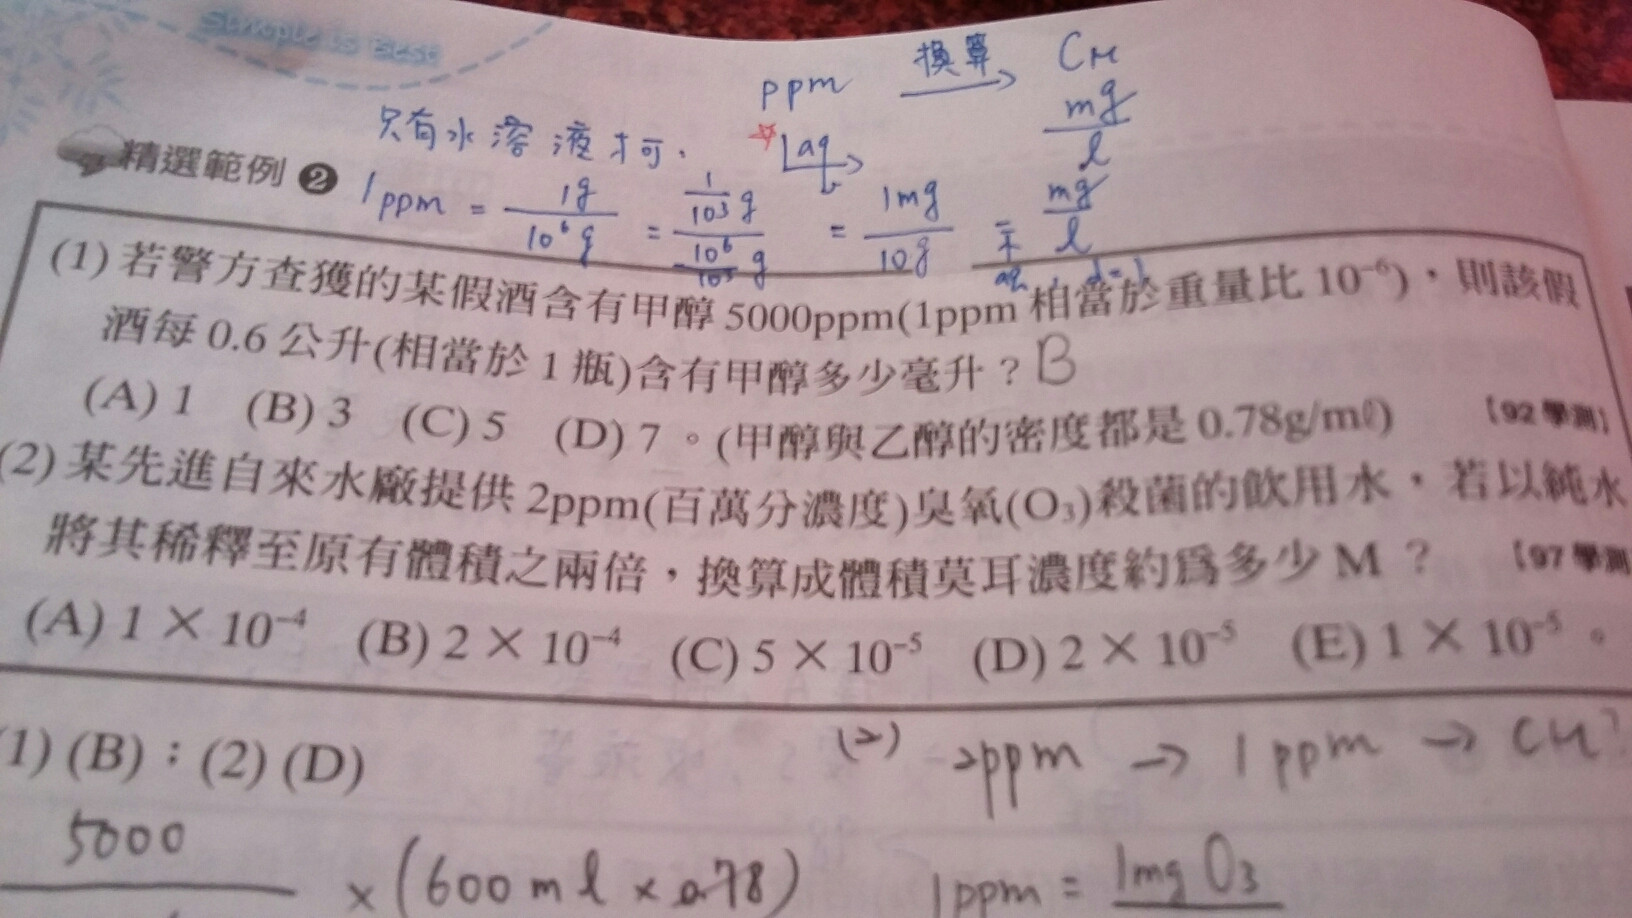 Simple is Best
ppm 換算→ CM
只有水溶液才可.
mg/l
aq
精選範例 2
1ppm = 1g/10⁶g = 1/10³ g / 10⁶/10³ g = 1mg/10g = mg/l
aq, d=1
(1) 若警方查獲的某假酒含有甲醇5000ppm(1ppm相當於重量比10⁻⁶),則該假
酒每0.6公升(相當於1瓶)含有甲醇多少毫升?B
(A) 1 (B) 3 (C) 5 (D) 7。(甲醇與乙醇的密度都是0.78g/mℓ) 【92學測】
(2) 某先進自來水廠提供2ppm(百萬分濃度)臭氧(O₃)殺菌的飲用水,若以純水
將其稀釋至原有體積之兩倍,換算成體積莫耳濃度約為多少M? 【97學測
(A) 1×10⁻⁴ (B) 2×10⁻⁴ (C) 5×10⁻⁵ (D) 2×10⁻⁵ (E) 1×10⁻⁵。
1) (B);(2) (D)
(2) 2ppm → 1ppm → CM?
5000 × (600ml × 0.78)
1ppm = 1mg O₃